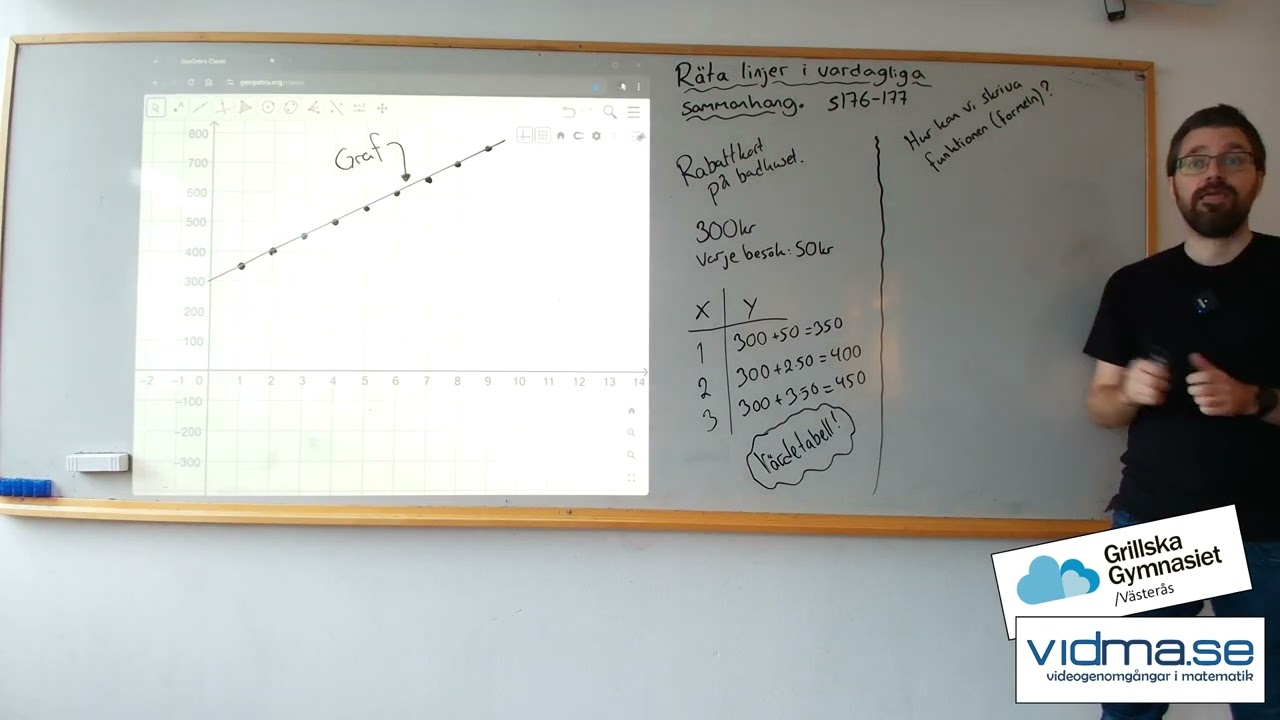 GeoGebra Classic
geogebra.org/classic
Graf
800
700
600
500
400
300
200
100
−2 −1 0 1 2 3 4 5 6 7 8 9 10 11 12 13 14
−100
−200
−300
Räta linjer i vardagliga
sammanhang. s176-177
Rabattkort
på badhuset.
300kr
varje besök: 50kr
X Y
1 300+50=350
2 300+2·50=400
3 300+3·50=450
Värdetabell!
Hur kan vi skriva
funktionen (formeln)?
Grillska
Gymnasiet
/Västerås
vidma.se
videogenomgångar i matematik